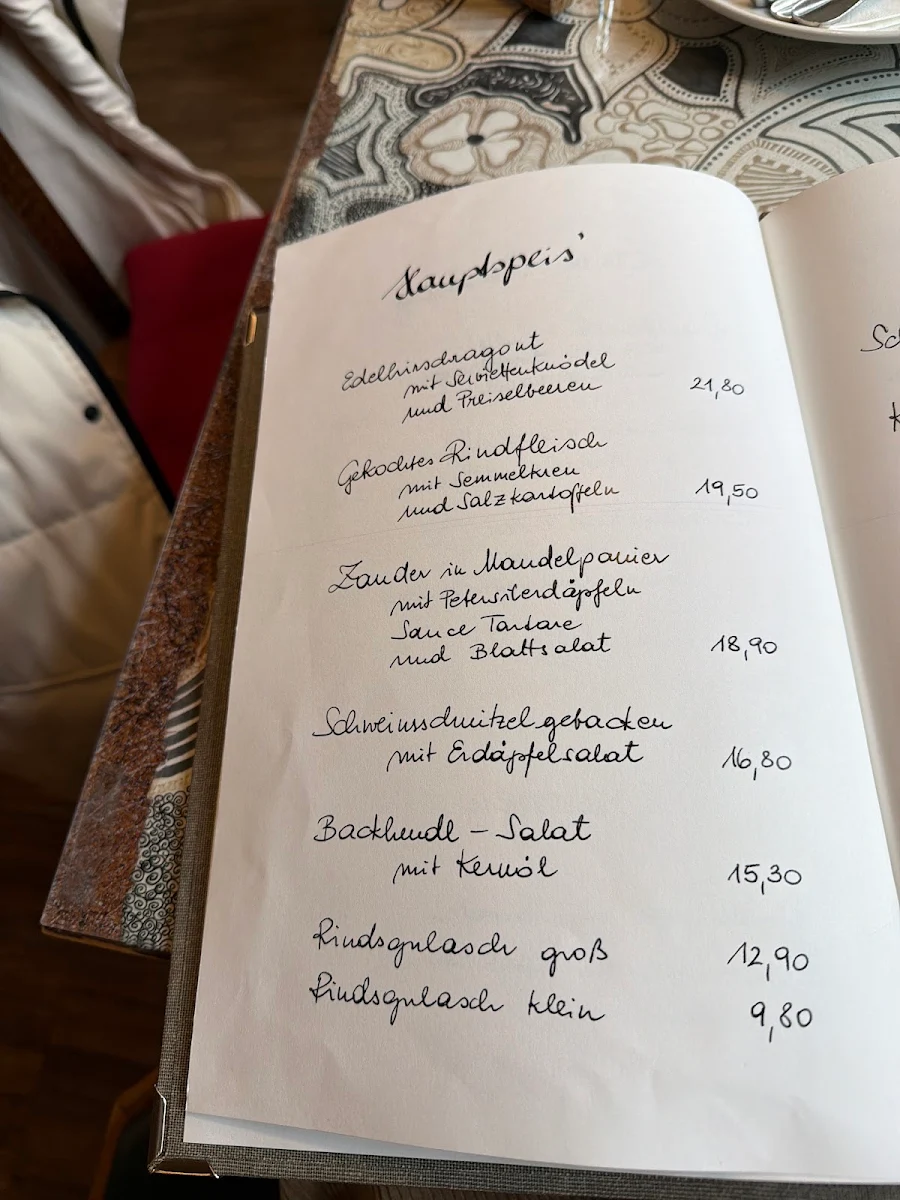 Hauptspeis'
Edelhirschragout
mit Serviettenknödel
und Preiselbeeren 21,80
Gekochtes Rindfleisch
mit Semmelkren
und Salzkartoffeln 19,50
Zander in Mandelpanier
mit Petersilerdäpfeln
Sauce Tartare
und Blattsalat 18,90
Schweinsschnitzel gebacken
mit Erdäpfelsalat 16,80
Backhendl - Salat
mit Kernöl 15,30
Rindsgulasch groß 12,90
Rindsgulasch klein 9,80